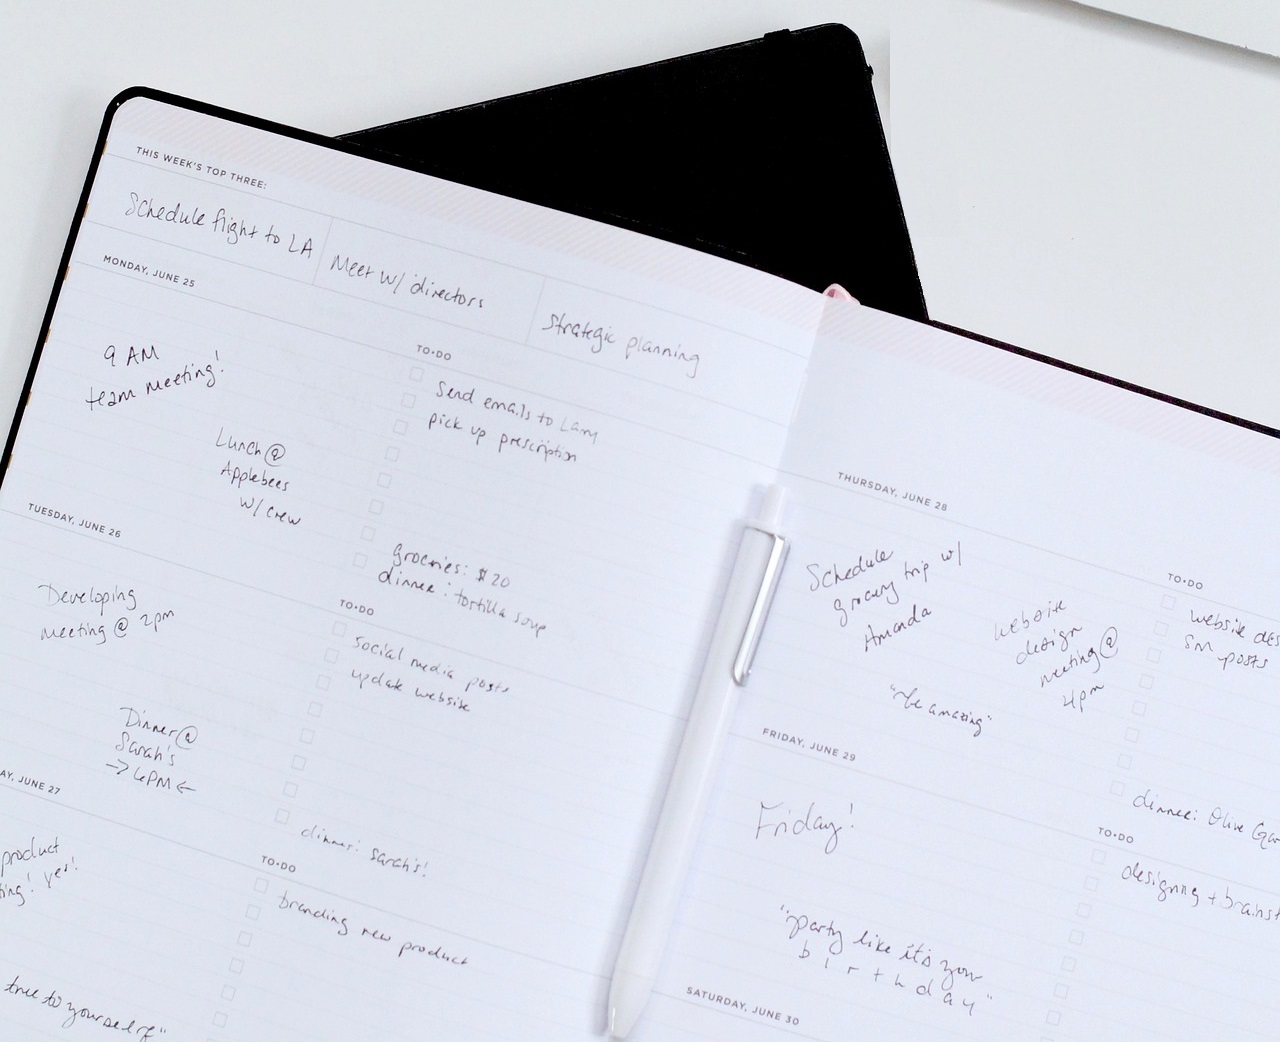 THIS WEEK'S TOP THREE:
Schedule flight to LA
Meet w/ directors
Strategic planning
MONDAY, JUNE 25
9 AM
team meeting!
Lunch @
Applebees
w/ crew
TO•DO
Send emails to Larry
pick up prescription
groceries: $20
dinner: tortilla soup
TUESDAY, JUNE 26
Developing
meeting @ 2pm
Dinner @
Sarah's
→ 6PM ←
TO•DO
social media posts
update website
dinner: Sarah's!
AY, JUNE 27
product
ting! yes!
true to yourself"
TO•DO
branding new product
THURSDAY, JUNE 28
Schedule
grocery trip w/
Amanda
website
design
meeting @
4pm
"be amazing"
TO•DO
website des
SM posts
dinner: Olive Gar
FRIDAY, JUNE 29
Friday!
"party like it's your
birthday"
TO•DO
designing + brainst
SATURDAY, JUNE 30